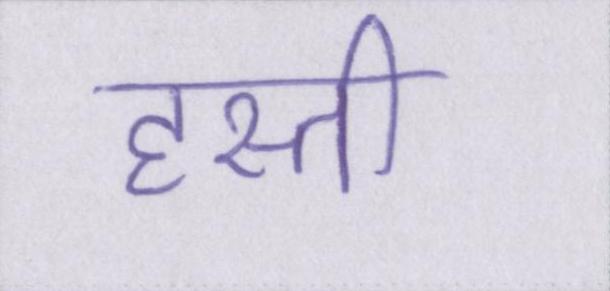 हस्ती